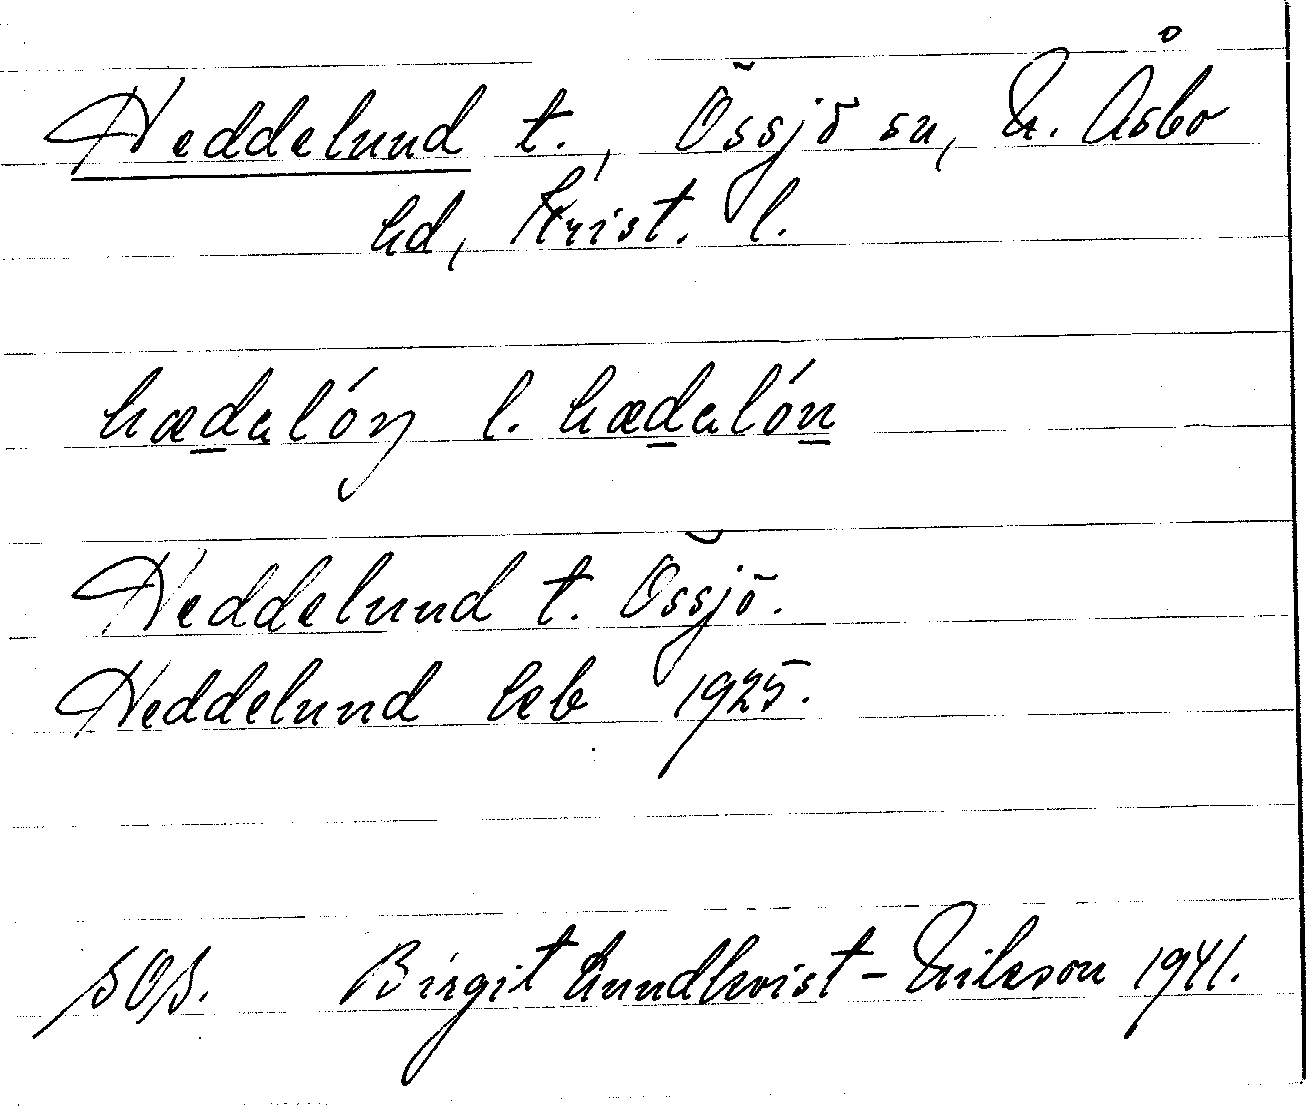 Heddelund t., Össjö sn, N. Åsbo
hd, Krist. l.
hædalóŋ l. hædalón
Heddelund t. Össjö.
Heddelund leb 1925.
SOS. Birgit Lundkvist-Nilsson 1941.